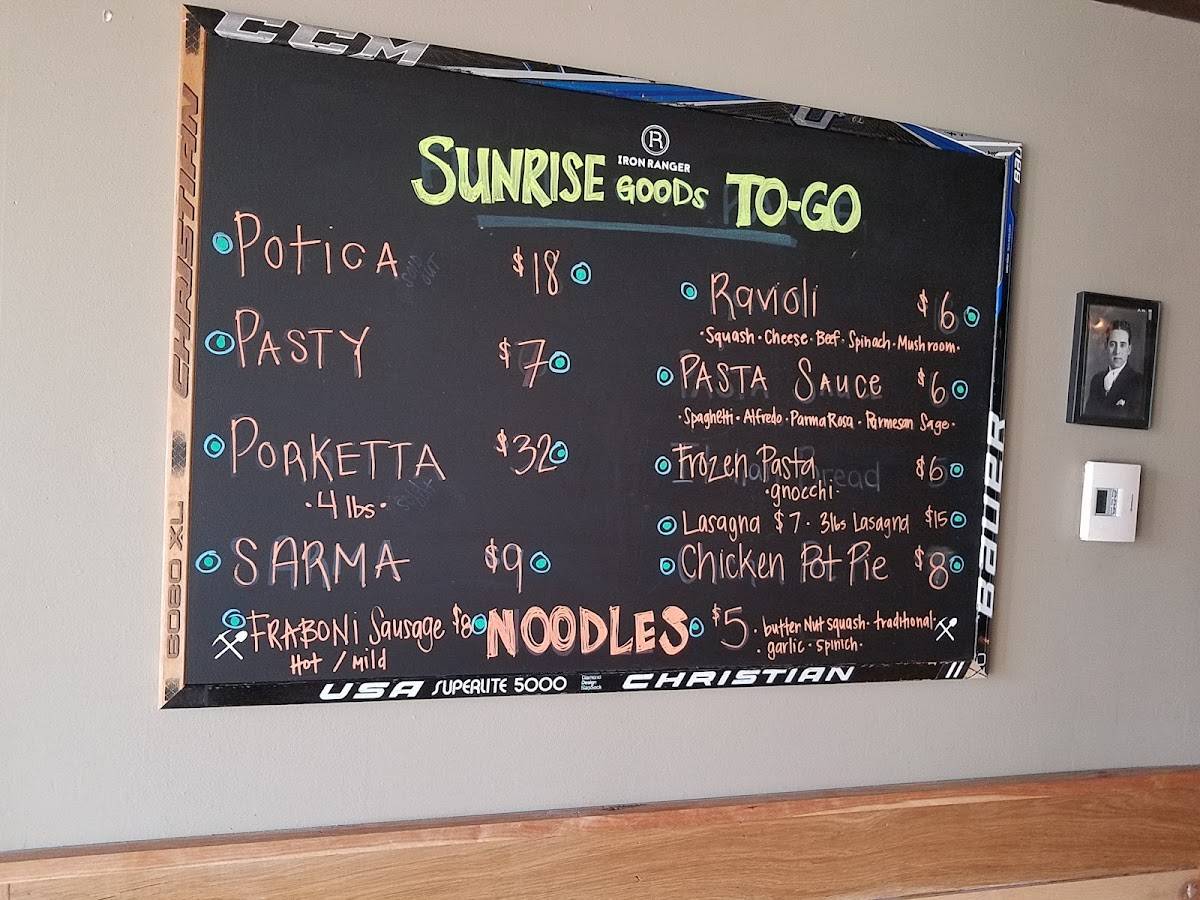 CCM
CHRISTIAN
8080 XL
BAUER
R
IRON RANGER
SUNRISE GOODS TO-GO
POTICA $18
PASTY $7
PORKETTA $32
·4 lbs·
SARMA $9
FRABONI Sausage $8
Hot / Mild
Ravioli $6
·Squash·Cheese·Beef·Spinach·Mushroom·
PASTA SAUCE $6
·Spaghetti·Alfredo·Parma Rosa·Parmesan Sage·
Frozen Pasta $6
·gnocchi·
Lasagna $7· 3lbs Lasagna $15
Chicken Pot Pie $8
NOODLES $5 ·butter Nut squash·traditional·
·garlic·spinich·
USA SUPERLITE 5000 CHRISTIAN